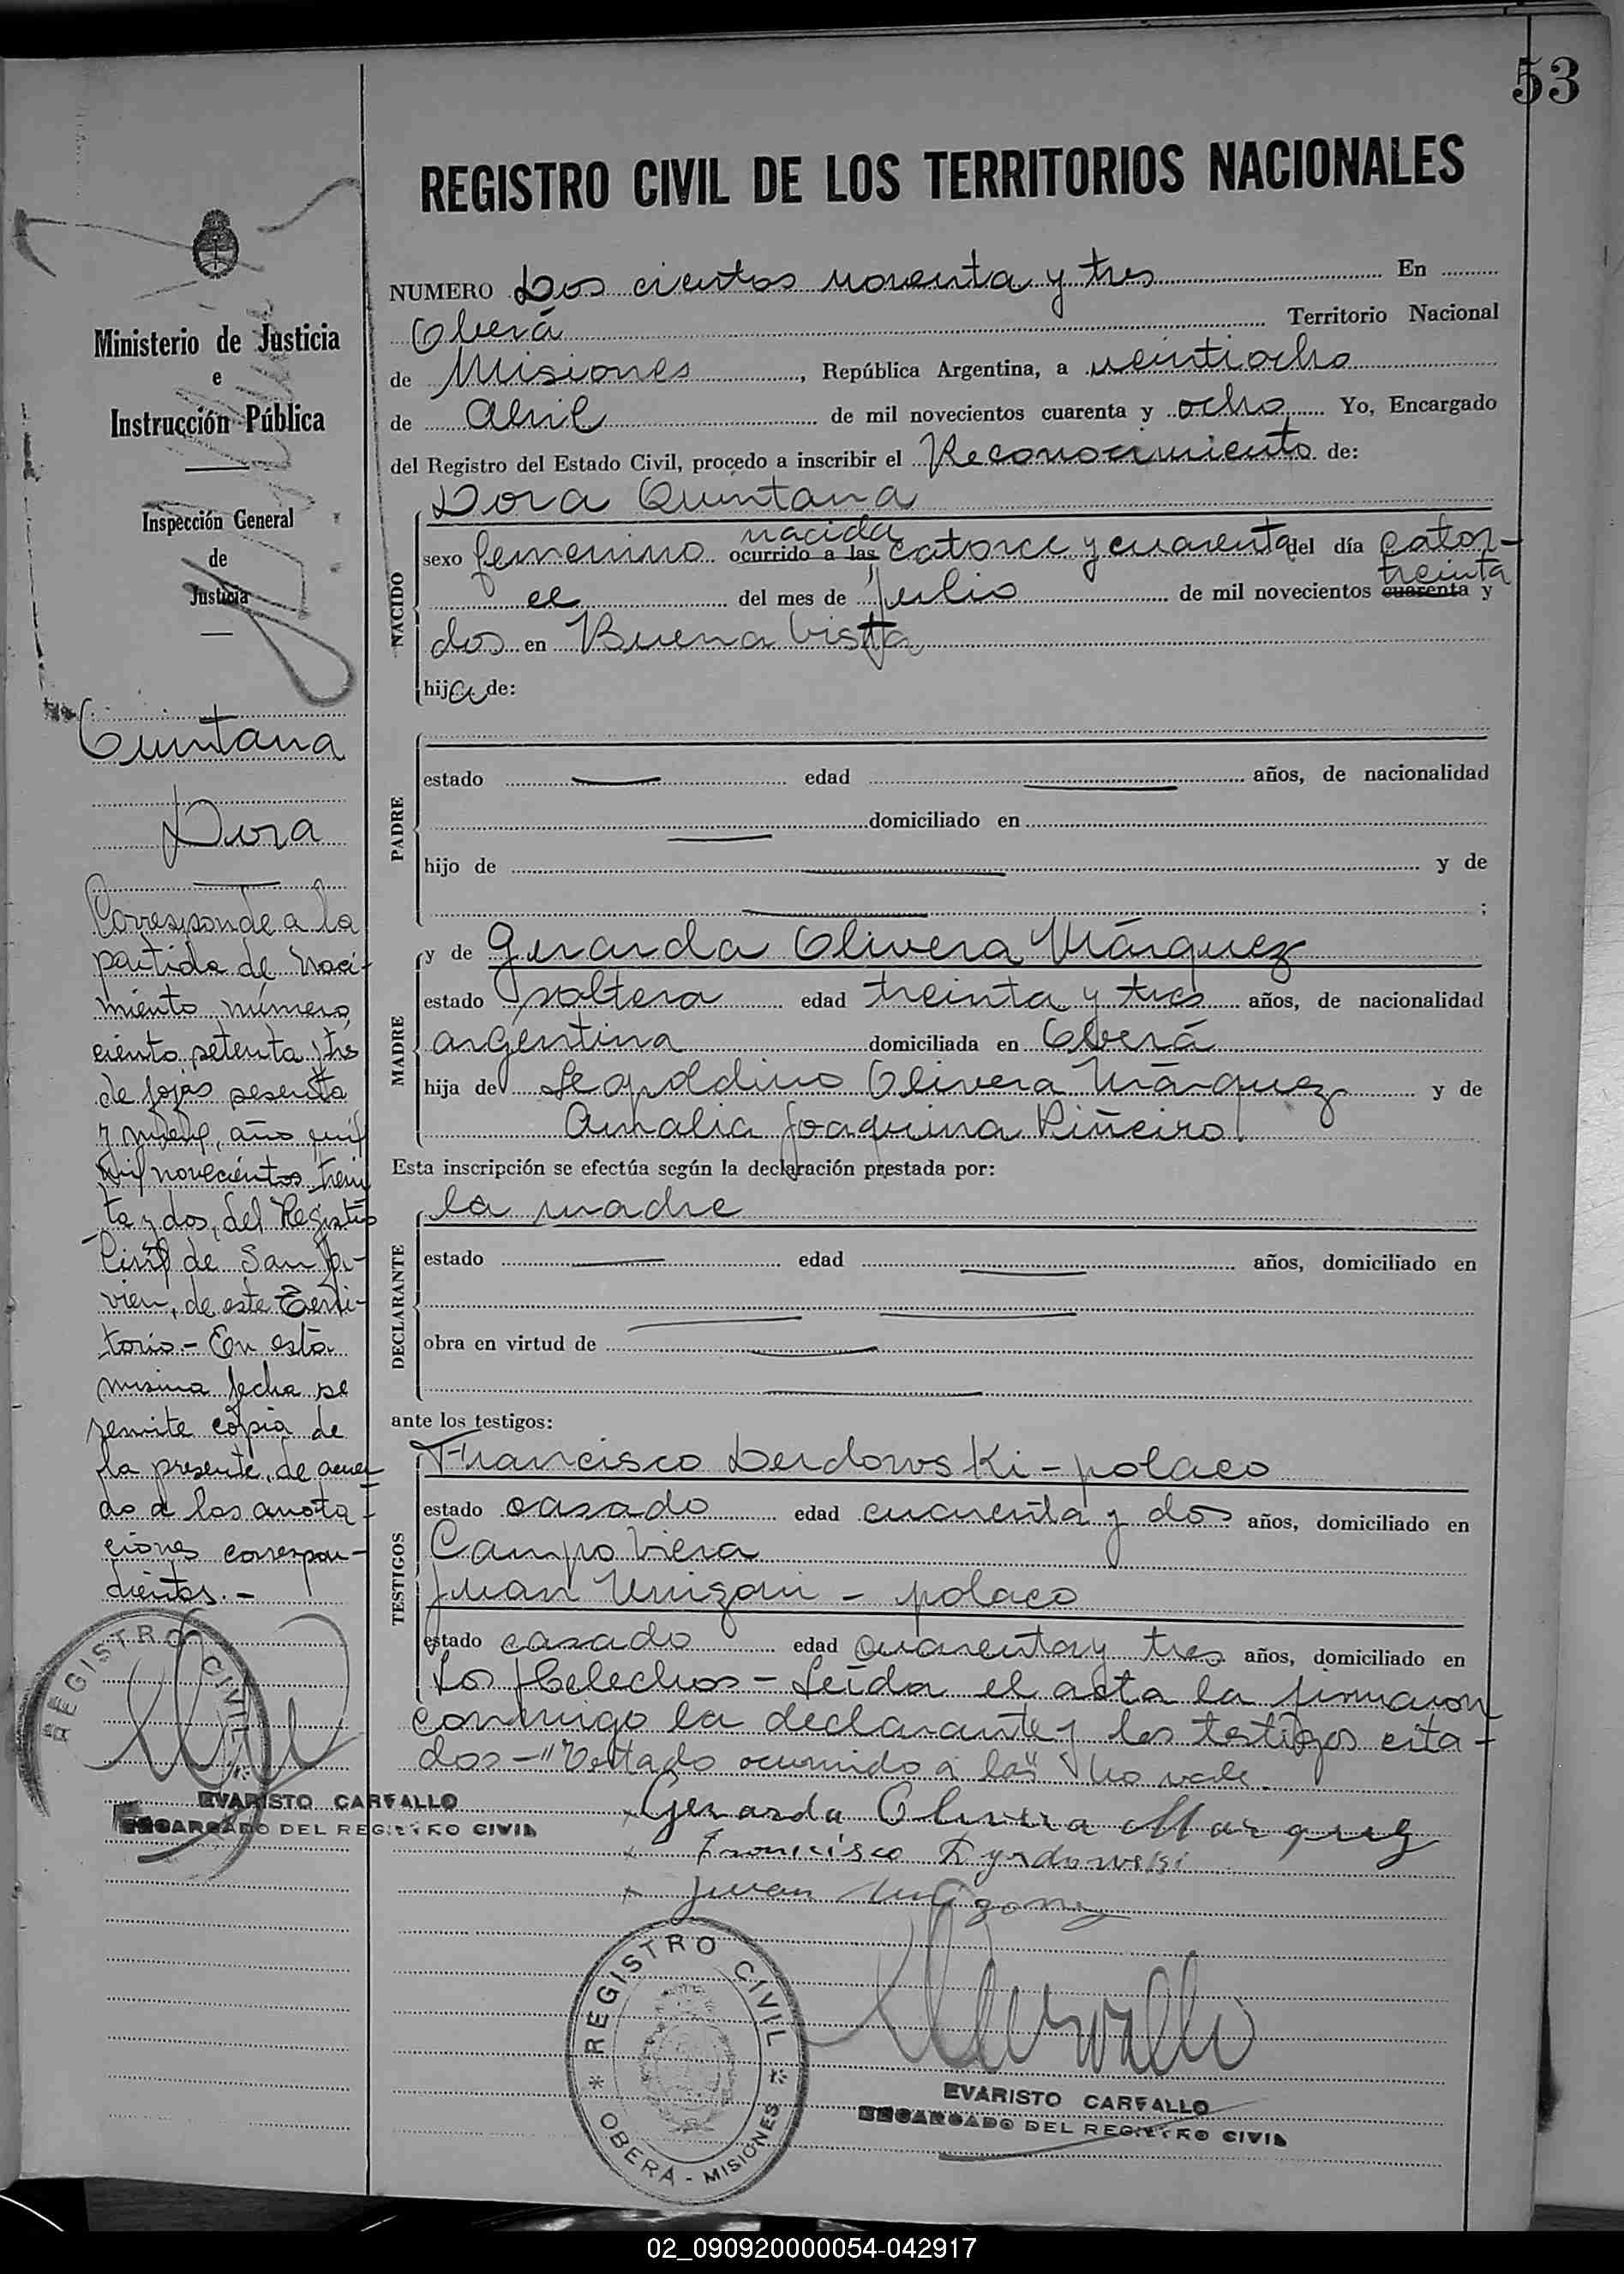 53
REGISTRO CIVIL DE LOS TERRITORIOS NACIONALES
Ministerio de Justicia
e
Instrucción Pública
Inspección General
de
Justicia
Quintana
Dora
Corresponde a la
partida de Naci-
miento número
ciento setenta y tres
de fojas sesenta
y nueve, año
mil novecientos trein
ta y dos, del Registro
Civil de San Ja-
vier, de este Terri-
torio.- En esta
misma fecha se
remite copia de
la presente, de acuer
do a las anota-
ciones correspon-
dientes.-
REGISTRO CIVIL
EVARISTO CARVALLO
ENCARGADO DEL REGISTRO CIVIL
NUMERO Dos cientos noventa y tres En
Oberá Territorio Nacional
de Misiones, República Argentina, a veintiocho
de Abril de mil novecientos cuarenta y ocho Yo, Encargado
del Registro del Estado Civil, procedo a inscribir el Reconocimiento de:
Dora Quintana
NACIDO
nacida
sexo femenino ocurrido a las catorce y cuarenta del día cator-
treinta
ce del mes de Julio de mil novecientos cuarenta y
dos en Buena Vista
hija de:
PADRE
estado edad años, de nacionalidad
domiciliado en
hijo de y de
;
MADRE
y de Gerarda Olivera Márquez
estado soltera edad treinta y tres años, de nacionalidad
argentina domiciliada en Oberá
hija de Leopoldino Olivera Márquez y de
Amalia Joaquina Piñeiro
Esta inscripción se efectúa según la declaración prestada por:
la madre
DECLARANTE
estado edad años, domiciliado en
obra en virtud de
ante los testigos:
TESTIGOS
Francisco Derdowski - polaco
estado casado edad cuarenta y dos años, domiciliado en
Campo Viera
Juan - polaco
estado casado edad cuarenta y tres años, domiciliado en
Los Helechos - Leída el acta la firmaron
conmigo la declarante y los testigos cita-
dos - "Testado ocurrido a las" No vale.
Gerarda Olivera Marquez
Francisco Dyrdowski
Juan
REGISTRO CIVIL
OBERÁ - MISIONES
EVARISTO CARVALLO
ENCARGADO DEL REGISTRO CIVIL
02_090920000054-042917